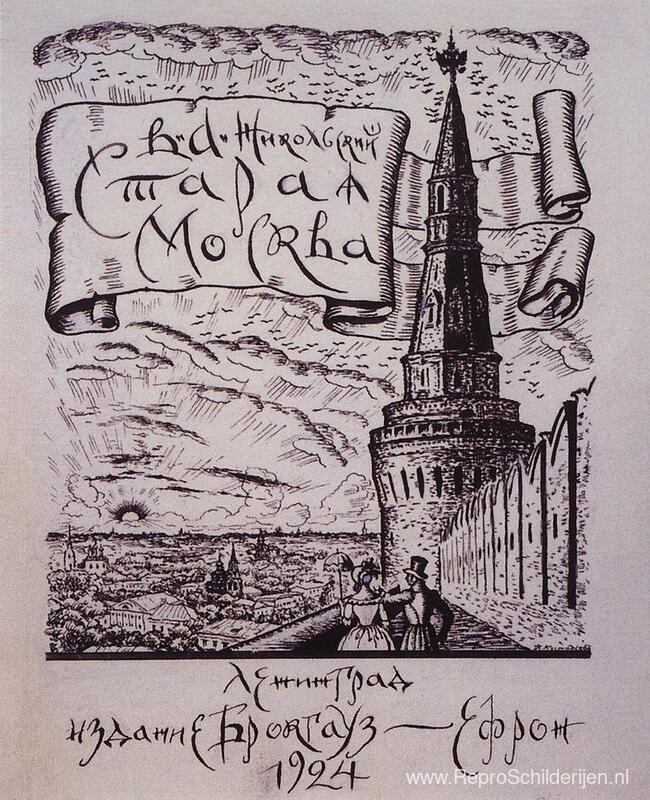 В. А. Никольский
Старая
Москва
Ленинград
издание Брокгауз — Ефрон
1924
www.ReproSchilderijen.nl